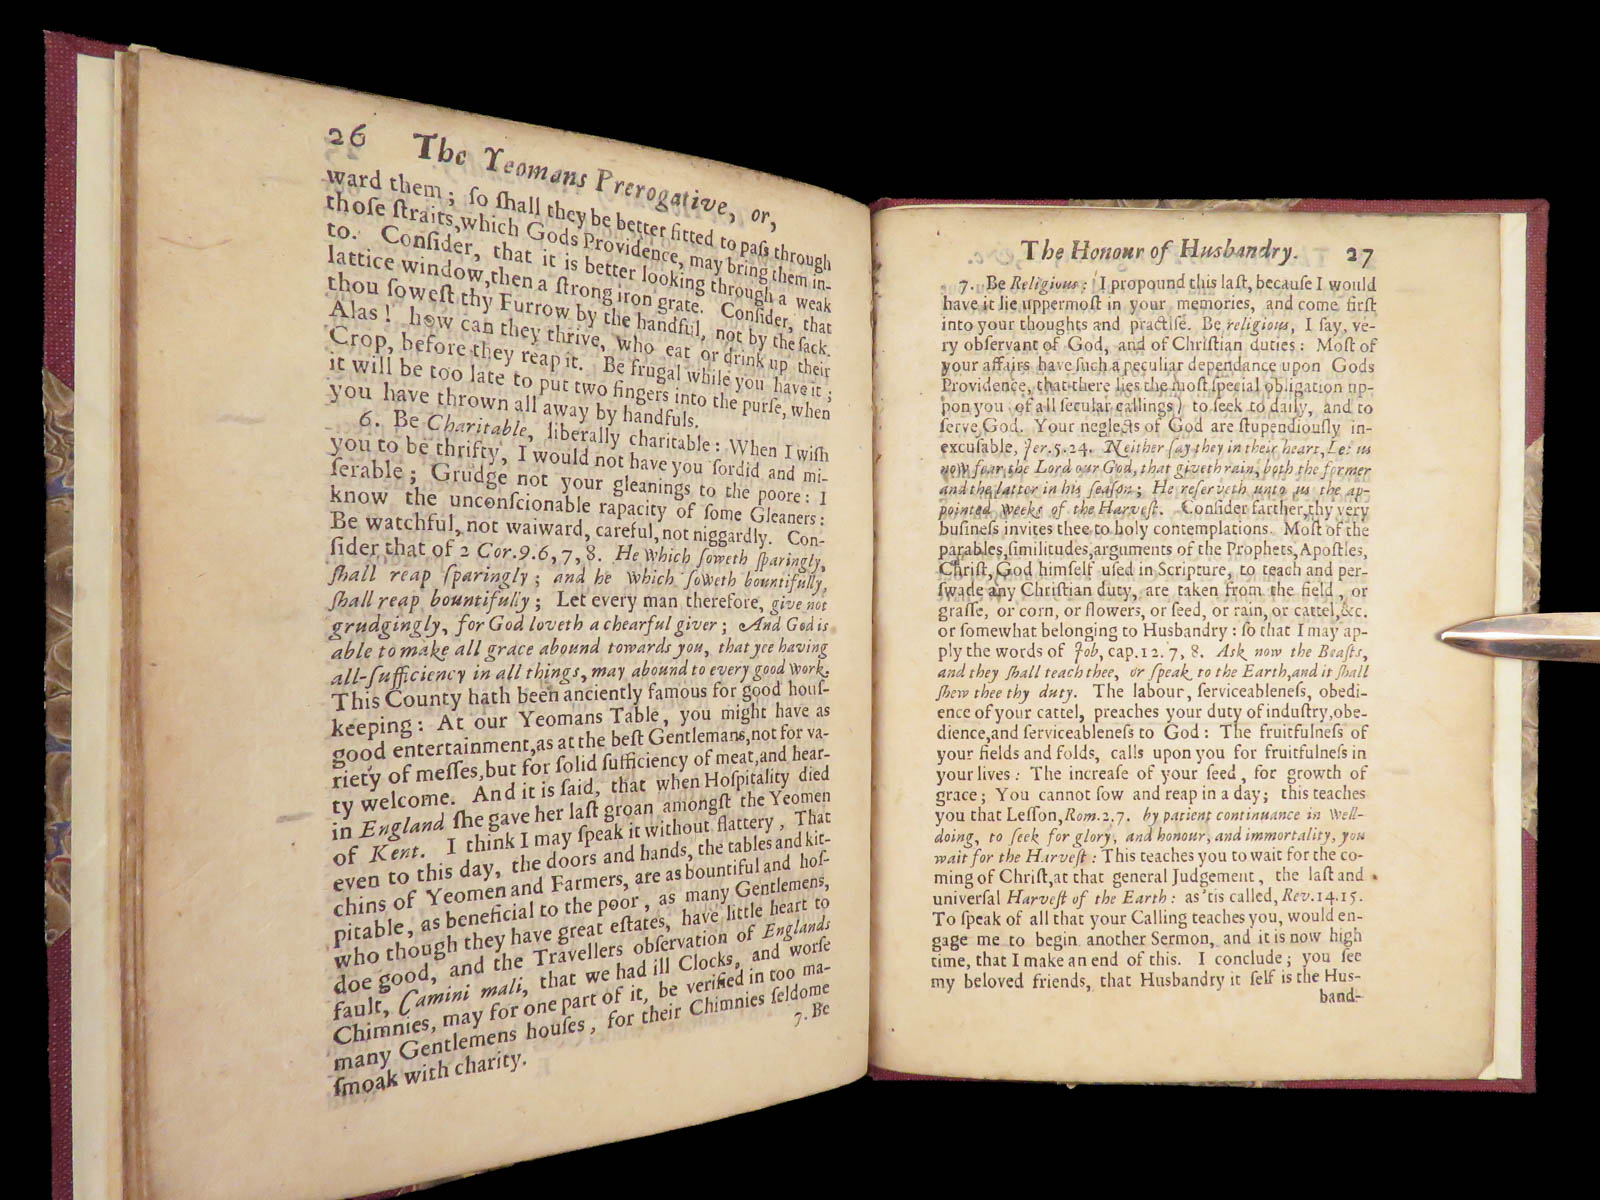 26 The Yeomans Prerogative, or,
ward them; ſo ſhall they be better fitted to paſs through
thoſe ſtraits,which Gods Providence, may bring them in-
to. Conſider, that it is better looking through a weak
lattice window,then a ſtrong iron grate. Conſider, that
thou ſoweſt thy Furrow by the handful, not by the ſack.
Alas! how can they thrive, who eat or drink up their
Crop, before they reap it. Be frugal while you have it;
it will be too late to put two fingers into the purſe, when
you have thrown all away by handfuls.
6. Be Charitable, liberally charitable: When I wiſh
you to be thrifty, I would not have you ſordid and mi-
ſerable; Grudge not your gleanings to the poore: I
know the unconſcionable rapacity of ſome Gleaners:
Be watchful, not waiward, careful, not niggardly. Con-
ſider that of 2 Cor.9.6, 7, 8. He which ſoweth ſparingly,
ſhall reap ſparingly; and he which ſoweth bountifully,
ſhall reap bountifully; Let every man therefore, give not
grudgingly, for God loveth a chearful giver; And God is
able to make all grace abound towards you, that yee having
all-ſufficiency in all things, may abound to every good work.
This County hath been anciently famous for good houſ-
keeping: At our Yeomans Table, you might have as
good entertainment,as at the beſt Gentlemans,not for va-
riety of meſſes,but for ſolid ſufficiency of meat,and hear-
ty welcome. And it is ſaid, that when Hoſpitality died
in England ſhe gave her laſt groan amongſt the Yeomen
of Kent. I think I may ſpeak it without flattery, That
even to this day, the doors and hands, the tables and kit-
chins of Yeomen and Farmers, are as bountiful and hoſ-
pitable, as beneficial to the poor, as many Gentlemens,
who though they have great eſtates, have little heart to
doe good, and the Travellers obſervation of Englands
fault, Camini mali, that we had ill Clocks, and worſe
Chimnies, may for one part of it, be verified in too ma-
many Gentlemens houſes, for their Chimnies ſeldome
ſmoak with charity.
7. Be
The Honour of Husbandry. 27
7. Be Religious: I propound this laſt, becauſe I would
have it lie uppermoſt in your memories, and come firſt
into your thoughts and practiſe. Be religious, I ſay, ve-
ry obſervant of God, and of Chriſtian duties: Moſt of
your affairs have ſuch a peculiar dependance upon Gods
Providence, that there lies the moſt ſpecial obligation up-
pon you (of all ſecular callings) to ſeek to daily, and to
ſerve God. Your neglects of God are ſtupendiouſly in-
excuſable, Jer.5.24. Neither ſay they in their heart, Let us
now fear the Lord our God, that giveth rain, both the former
and the latter in his ſeaſon; He reſerveth unto us the ap-
pointed weeks of the Harveſt. Conſider farther,thy very
buſineſs invites thee to holy contemplations. Moſt of the
parables,ſimilitudes,arguments of the Prophets,Apoſtles,
Chriſt, God himſelf uſed in Scripture, to teach and per-
ſwade any Chriſtian duty, are taken from the field, or
graſſe, or corn, or flowers, or ſeed, or rain, or cattel,&c.
or ſomewhat belonging to Husbandry: ſo that I may ap-
ply the words of Job, cap.12.7, 8. Ask now the Beaſts,
and they ſhall teach thee, or ſpeak to the Earth,and it ſhall
ſhew thee thy duty. The labour, ſerviceableneſs, obedi-
ence of your cattel, preaches your duty of induſtry,obe-
dience,and ſerviceableneſs to God: The fruitfulneſs of
your fields and folds, calls upon you for fruitfulneſs in
your lives: The increaſe of your ſeed, for growth of
grace; You cannot ſow and reap in a day; this teaches
you that Leſſon,Rom.2.7. by patient continuance in well-
doing, to ſeek for glory, and honour, and immortality, you
wait for the Harveſt: This teaches you to wait for the co-
ming of Chriſt,at that general Judgement, the laſt and
univerſal Harveſt of the Earth: as 'tis called, Rev.14.15.
To ſpeak of all that your Calling teaches you, would en-
gage me to begin another Sermon, and it is now high
time, that I make an end of this. I conclude; you ſee
my beloved friends, that Husbandry it ſelf is the Hus-
band-